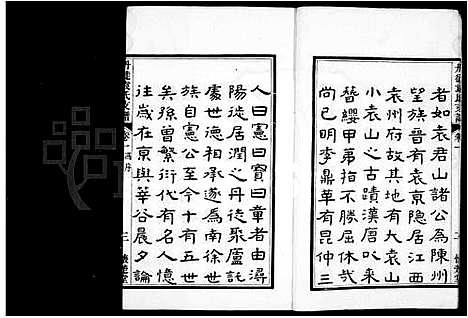 者如袁君山諸公為陳州
望族晉有袁京隱居江西
袁州府故其地有大袁山
小袁山之古蹟漢唐以來
簪纓甲第指不勝屈休哉
尚已明季鼎革有昆仲三
人曰憲曰寶曰章者由潯
陽徙居潤之丹徒聚廬託
處世德相承遂為南徐世
族自憲公至今十有五世
矣孫曾繁衍代有名人憶
往歲在京與華谷晨夕論